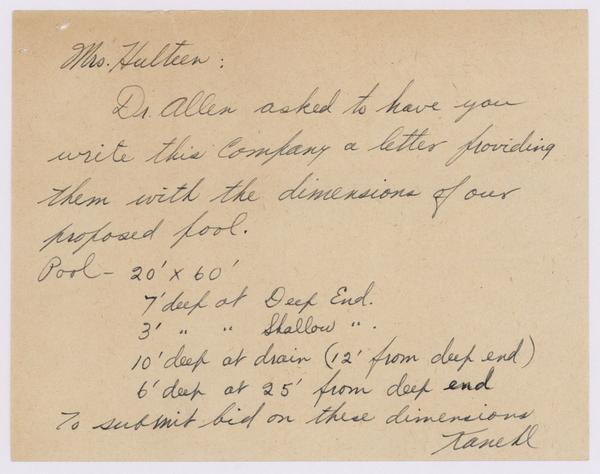 Mrs. Hulteen :
Dr. Allen asked to have you
write this Company a letter providing
them with the dimensions of our
proposed pool.
Pool - 20' x 60'
7' deep at Deep End.
3' " " Shallow " .
10' deep at drain (12' from deep end)
6' deep at 25' from deep end
To submit bid on these dimensions